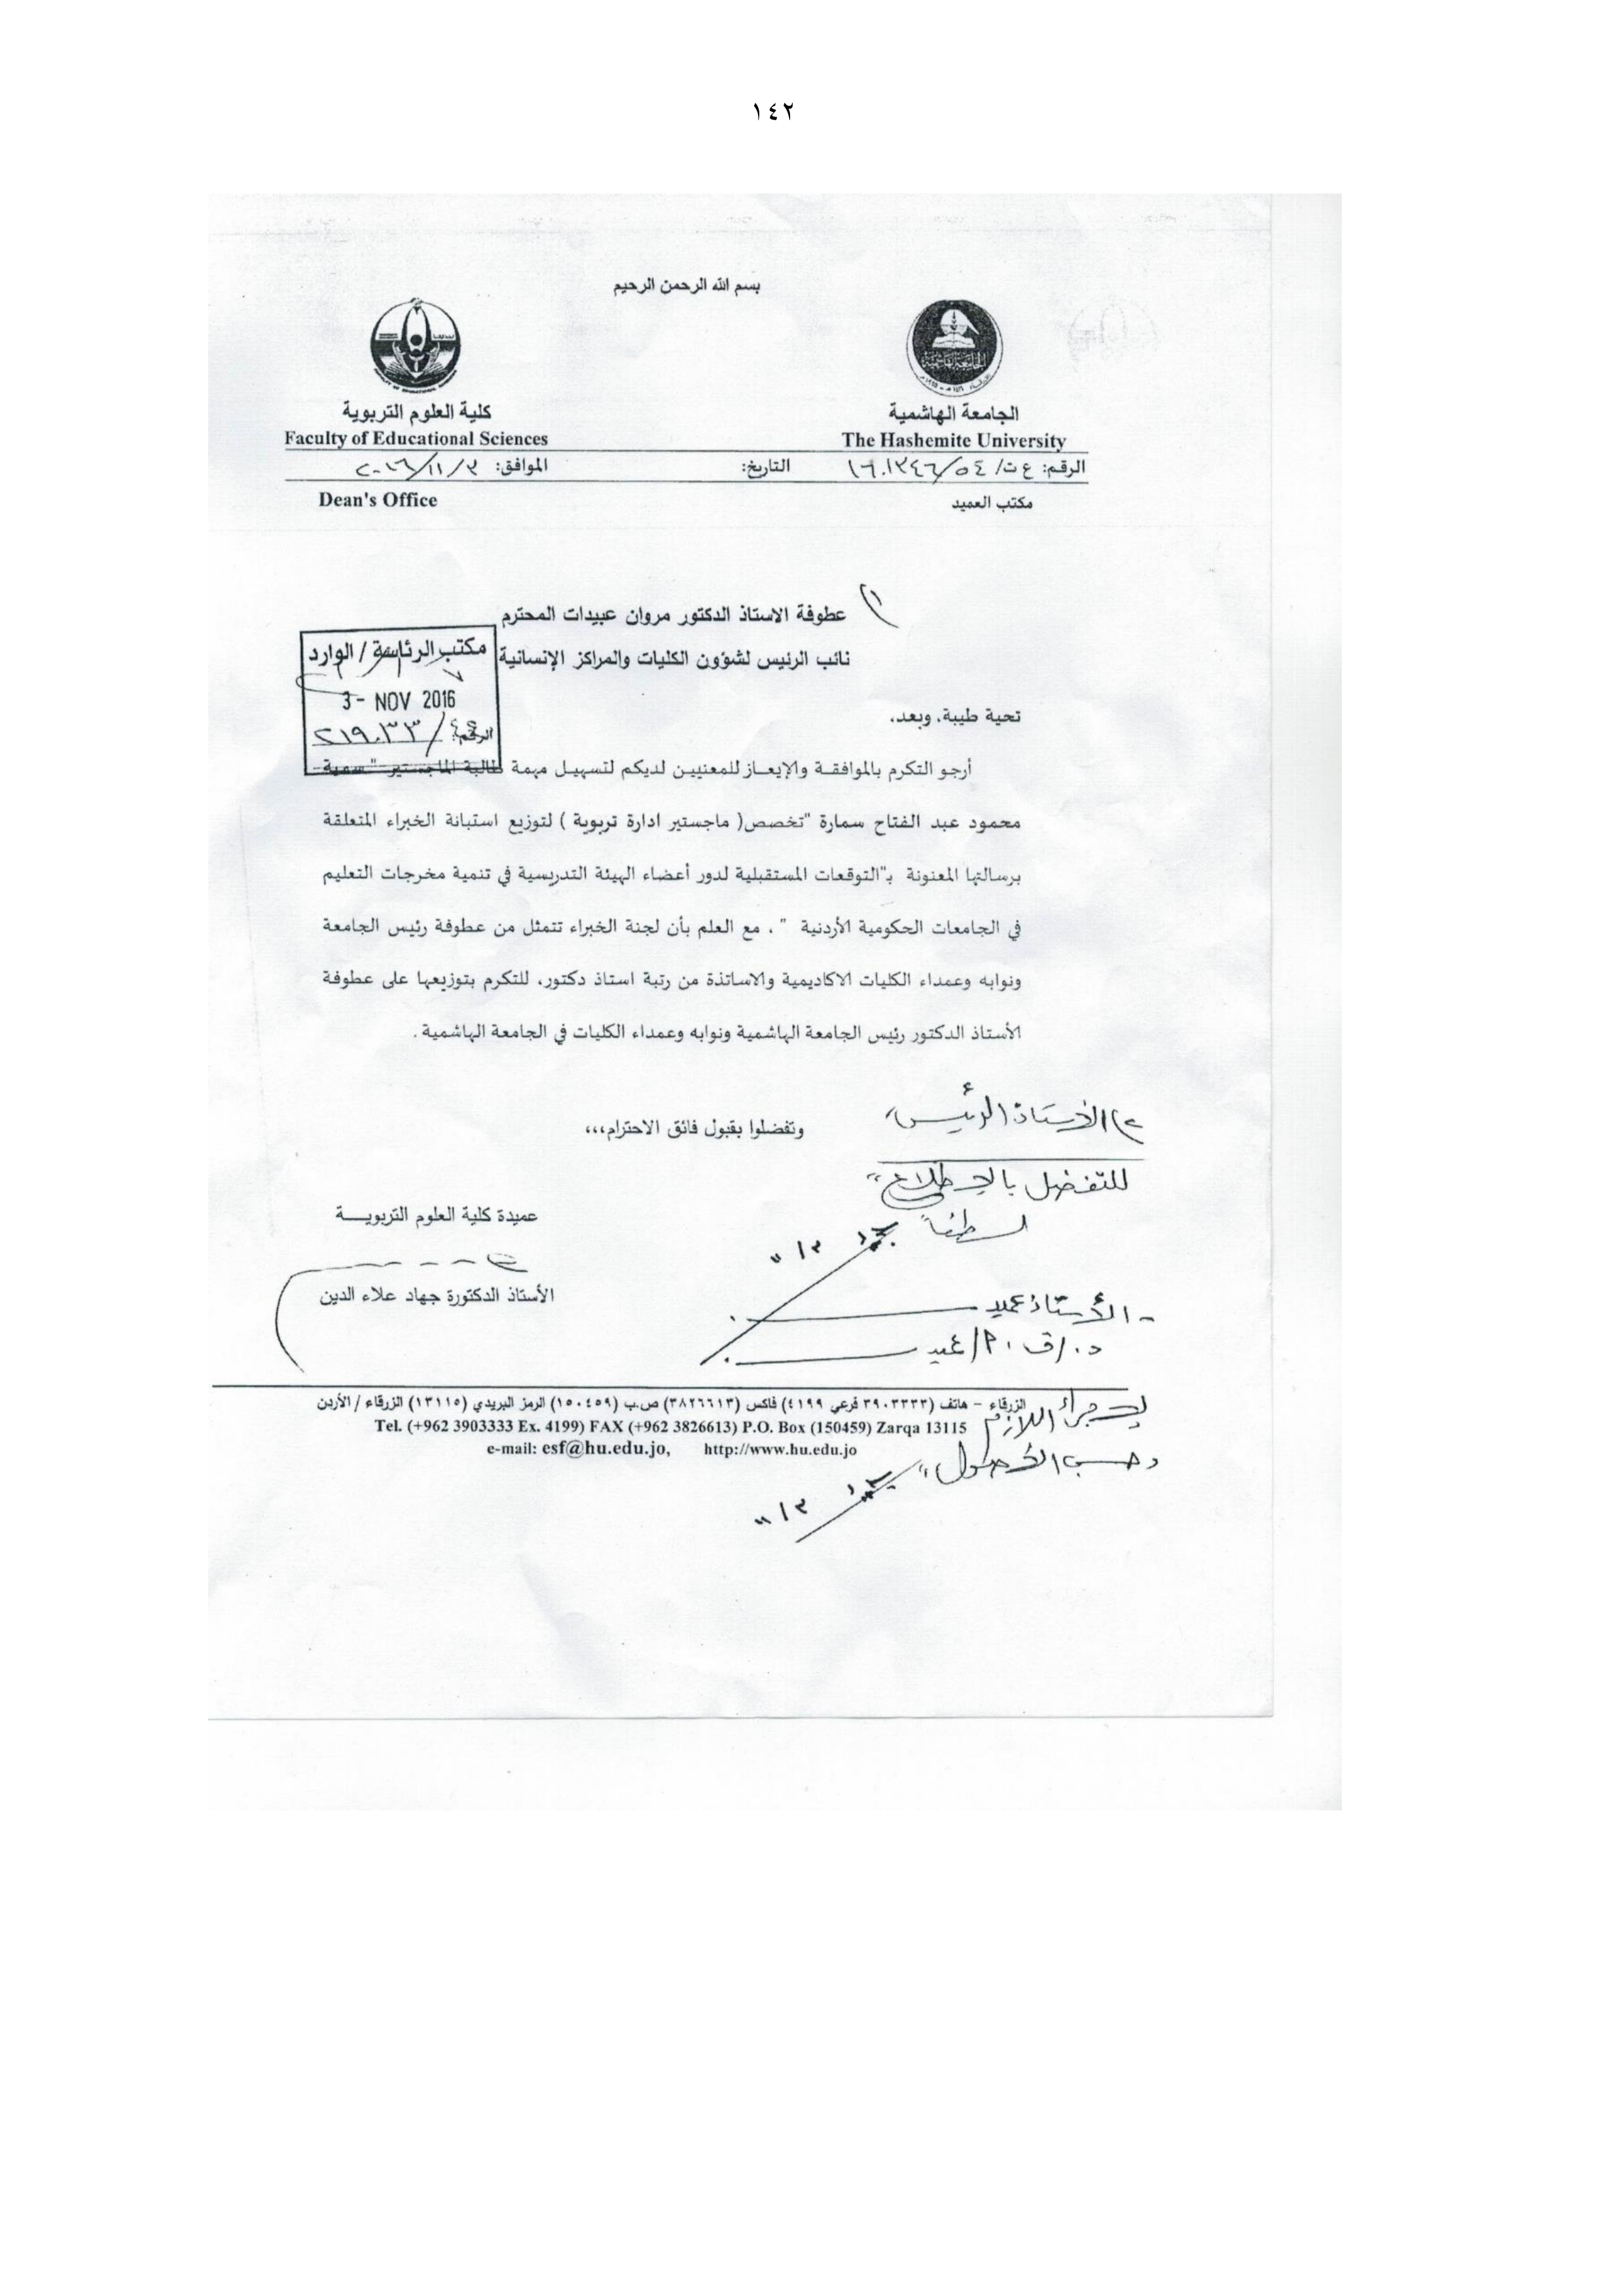 ١٤٢
بسم الله الرحمن الرحيم
الجامعة الهاشمية
The Hashemite University
كلية العلوم التربوية
Faculty of Educational Sciences
الرقم: ع ت/ ١٦٠١٣٤٦/٥٤ التاريخ: الموافق: ٢٠١٦/١١/٣
مكتب العميد Dean's Office
عطوفة الاستاذ الدكتور مروان عبيدات المحترم
نائب الرئيس لشؤون الكليات والمراكز الإنسانية
مكتب الرئاسة / الوارد
3- NOV 2016
تحية طيبة، وبعد،
أرجو التكرم بالموافقة والإيعاز للمعنيين لديكم لتسهيل مهمة طالبة الماجستير "سمية
محمود عبد الفتاح سمارة "تخصص( ماجستير ادارة تربوية ) لتوزيع استبانة الخبراء المتعلقة
برسالتها المعنونة بـ"التوقعات المستقبلية لدور أعضاء الهيئة التدريسية في تنمية مخرجات التعليم
في الجامعات الحكومية الأردنية " ، مع العلم بأن لجنة الخبراء تتمثل من عطوفة رئيس الجامعة
ونوابه وعمداء الكليات الاكاديمية والاساتذة من رتبة استاذ دكتور، للتكرم بتوزيعها على عطوفة
الأستاذ الدكتور رئيس الجامعة الهاشمية ونوابه وعمداء الكليات في الجامعة الهاشمية .
وتفضلوا بقبول فائق الاحترام،،،
٢) الأستاذ الرئيس
للتفضل بالاطلاع
لطفاً
عميدة كلية العلوم التربويـــة
الأستاذ الدكتورة جهاد علاء الدين
- الأستاذ عميد
لإجراء اللازم
وحسب الأصول
الزرقاء - هاتف (٣٩٠٣٣٣٣ فرعي ٤١٩٩) فاكس (٣٨٢٦٦١٣) ص.ب (١٥٠٤٥٩) الرمز البريدي (١٣١١٥) الزرقاء / الأردن
Tel. (+962 3903333 Ex. 4199) FAX (+962 3826613) P.O. Box (150459) Zarqa 13115
e-mail: esf@hu.edu.jo, http://www.hu.edu.jo